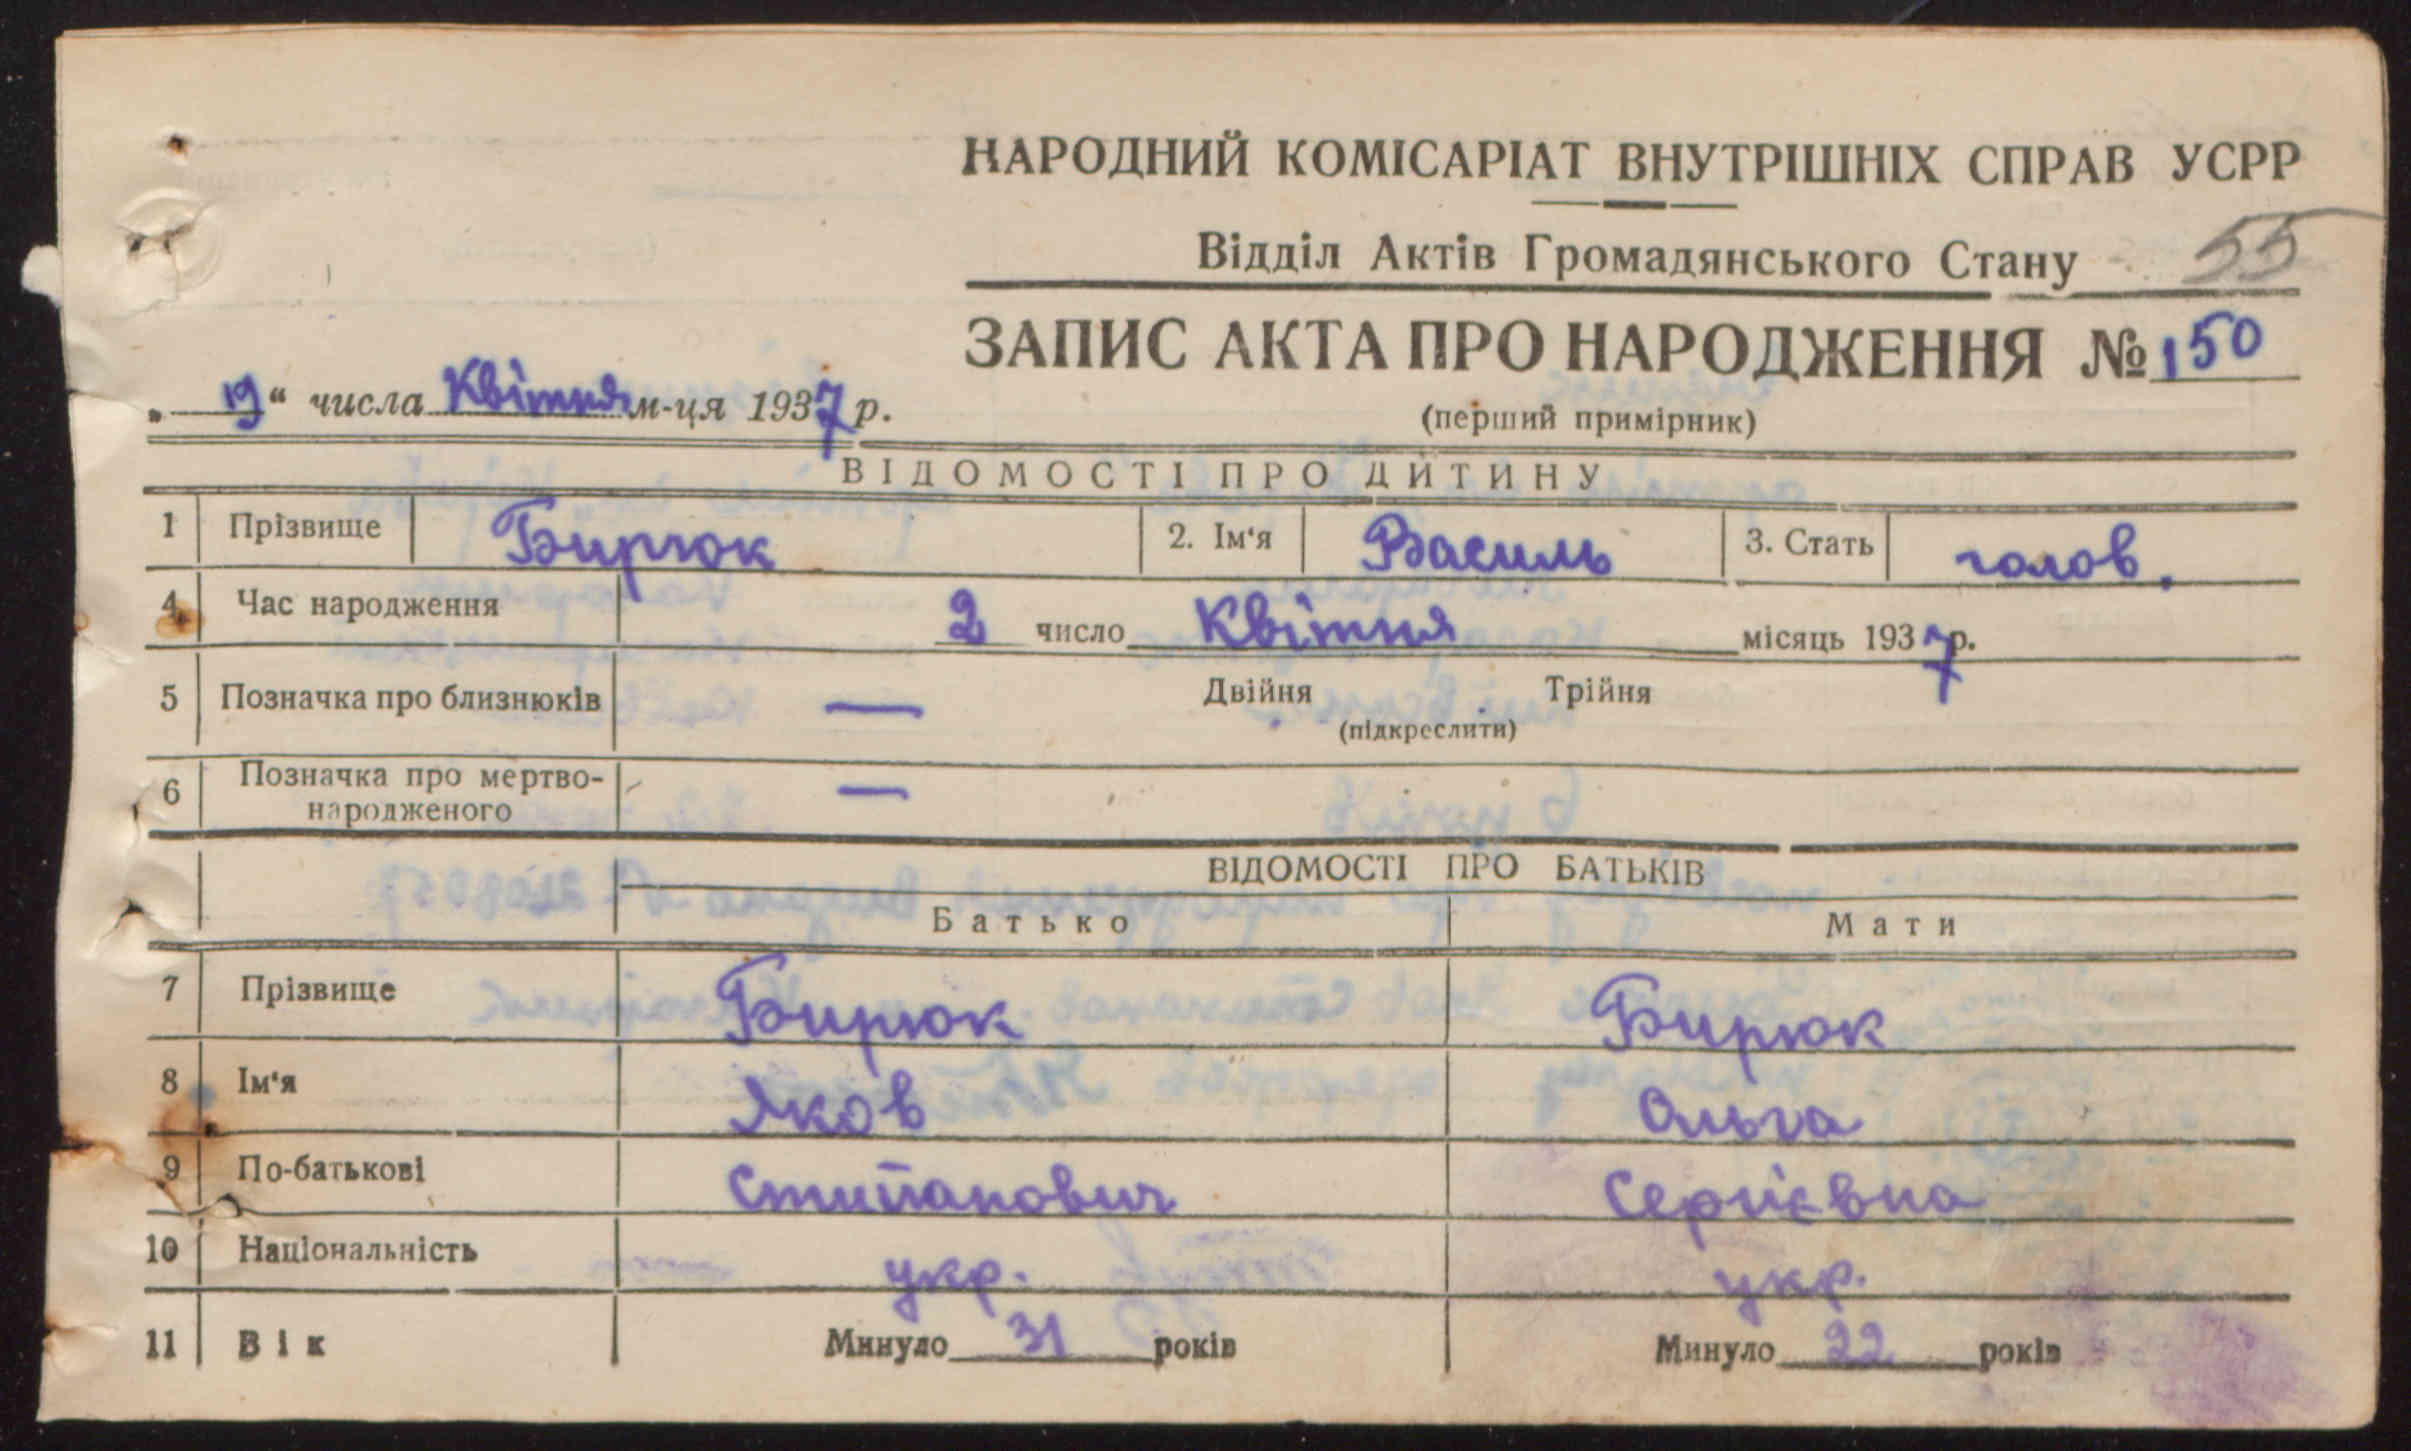 НАРОДНИЙ КОМІСАРІАТ ВНУТРІШНІХ СПРАВ УСРР
Відділ Актів Громадянського Стану 55
ЗАПИС АКТА ПРО НАРОДЖЕННЯ № 150
„19“ числа Квітня м-ця 1937 р.
(перший примірник)
ВІДОМОСТІ ПРО ДИТИНУ
1 Прізвище Бирюк 2. Ім‘я Василь 3. Стать чолов.
4 Час народження 2 число Квітня місяць 1937 р.
5 Позначка про близнюків — Двійня Трійня
(підкреслити)
6 Позначка про мертво-
народженого —
ВІДОМОСТІ ПРО БАТЬКІВ
Батько Мати
7 Прізвище Бирюк Бирюк
8 Ім‘я Яков Ольга
9 По-батькові Стипанович Сергієвна
10 Національність укр. укр.
11 Вік Минуло 31 років Минуло 22 років